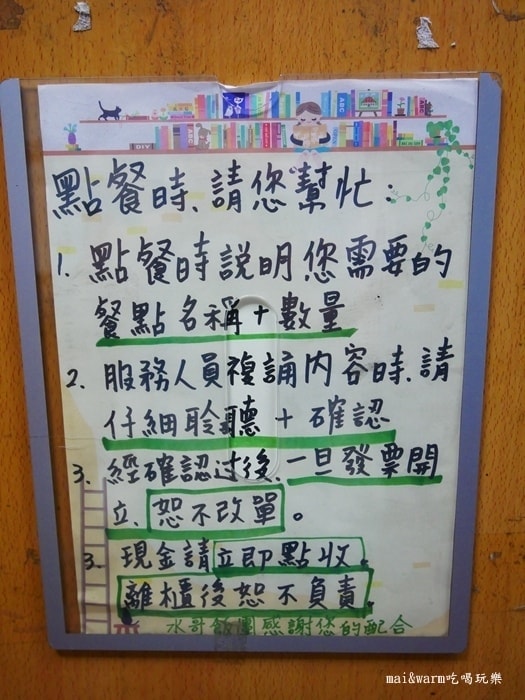 點餐時、請您幫忙：
1. 點餐時說明您需要的
餐點名稱+數量
2、服務人員複誦內容時、請
仔細聆聽+確認
3、經確認过後、一旦發票開
立、恕不改單。
3. 現金請立即點收。
離櫃後恕不負責。
水哥飯糰感謝您的配合
ABC
ABC
ABC
DIY
mai&warm吃喝玩樂